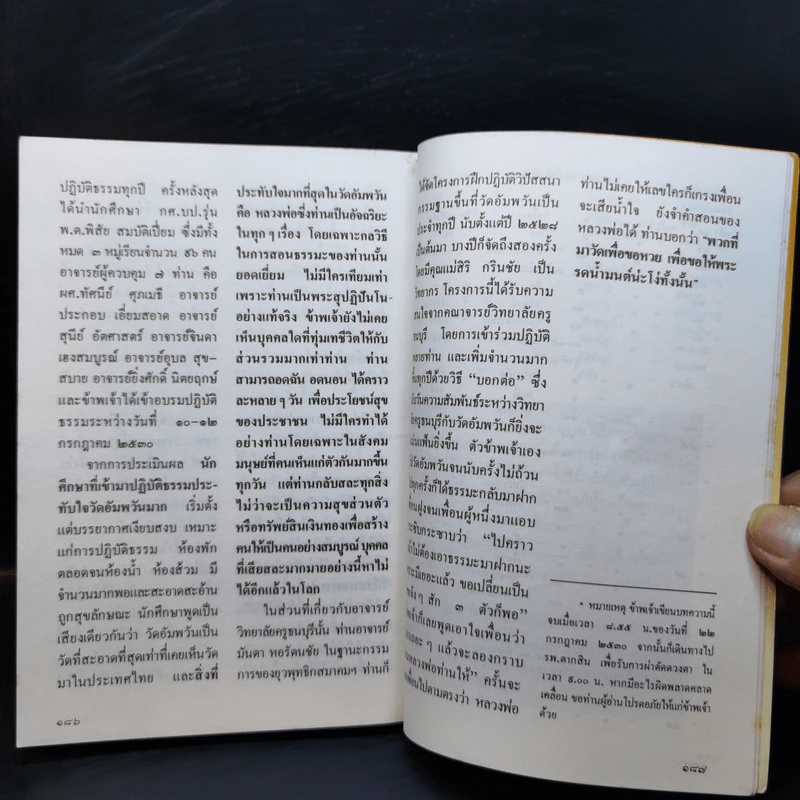 ปฏิบัติธรรมทุกปี ครั้งหลังสุด
ได้นำนักศึกษา กศ.บป.รุ่น
พ.ต.พิสัย สมบัติเปี่ยม ซึ่งมีทั้ง
หมด ๓ หมู่เรียนจำนวน ๕๖ คน
อาจารย์ผู้ควบคุม ๗ ท่าน คือ
ผศ.ทัศนีย์ ศุภเมธี อาจารย์
ประกอบ เอี่ยมสอาด อาจารย์
สุนีย์ อัตศาสตร์ อาจารย์จินดา
เฮงสมบูรณ์ อาจารย์อุบล สุข-
สบาย อาจารย์ยิ่งศักดิ์ นิตยฤกษ์
และข้าพเจ้าได้เข้าอบรมปฏิบัติ
ธรรมระหว่างวันที่ ๑๐-๑๒
กรกฎาคม ๒๕๓๐
จากการประเมินผล นัก
ศึกษาที่เข้ามาปฏิบัติธรรมประ-
ทับใจวัดอัมพวันมาก เริ่มตั้ง
แต่บรรยากาศเงียบสงบ เหมาะ
แก่การปฏิบัติธรรม ห้องพัก
ตลอดจนห้องน้ำ ห้องส้วม มี
จำนวนมากพอและสะอาดสะอ้าน
ถูกสุขลักษณะ นักศึกษาพูดเป็น
เสียงเดียวกันว่า วัดอัมพวันเป็น
วัดที่สะอาดที่สุดเท่าที่เคยเห็นวัด
มาในประเทศไทย และสิ่งที่
ประทับใจมากที่สุดในวัดอัมพวัน
คือ หลวงพ่อซึ่งท่านเป็นอัจฉริยะ
ในทุกๆ เรื่อง โดยเฉพาะกลวิธี
ในการสอนธรรมะของท่านนั้น
ยอดเยี่ยม ไม่มีใครเทียมเท่า
เพราะท่านเป็นพระสุปฏิปันโน
อย่างแท้จริง ข้าพเจ้ายังไม่เคย
เห็นบุคคลใดที่ทุ่มเทชีวิตให้กับ
ส่วนรวมมากเท่าท่าน ท่าน
สามารถอดฉัน อดนอน ได้คราว
ละหลายๆ วัน เพื่อประโยชน์สุข
ของประชาชน ไม่มีใครทำได้
อย่างท่านโดยเฉพาะในสังคม
มนุษย์ที่คนเห็นแก่ตัวกันมากขึ้น
ทุกวัน แต่ท่านกลับสละทุกสิ่ง
ไม่ว่าจะเป็นความสุขส่วนตัว
หรือทรัพย์สินเงินทองเพื่อสร้าง
คนให้เป็นคนอย่างสมบูรณ์ บุคคล
ที่เสียสละมากมายอย่างนี้หาไม่
ได้อีกแล้วในโลก
ในส่วนที่เกี่ยวกับอาจารย์
วิทยาลัยครูธนบุรีนั้น ท่านอาจารย์
มันดา หอรัตนชัย ในฐานะกรรม
การของยุวพุทธิกสมาคมฯ ท่านก็
๑๘๖
ได้จัดโครงการฝึกปฏิบัติวิปัสสนา
กรรมฐานขึ้นที่วัดอัมพวันเป็น
ประจำทุกปี นับตั้งแต่ปี ๒๕๒๘
เป็นต้นมา บางปีก็จัดถึงสองครั้ง
โดยมีคุณแม่สิริ กรินชัย เป็น
วิทยากร โครงการนี้ได้รับความ
สนใจจากคณาจารย์วิทยาลัยครู
ธนบุรี โดยการเข้าร่วมปฏิบัติ
หลายท่าน และเพิ่มจำนวนมาก
ขึ้นทุกปีด้วยวิธี “บอกต่อ” ซึ่ง
วันความสัมพันธ์ระหว่างวิทยา
ครูธนบุรีกับวัดอัมพวันก็ยิ่งจะ
แฟ้นยิ่งขึ้น ตัวข้าพเจ้าเอง
วัดอัมพวันจนนับครั้งไม่ถ้วน
ทุกครั้งก็ได้ธรรมะกลับมาฝาก
ฝูงจนเพื่อนผู้หนึ่งมาแอบ
ซิบกระซาบว่า “ไปคราว
ไม่ต้องเอาธรรมะมาฝากนะ
มะมีเยอะแล้ว ขอเปลี่ยนเป็น
ๆ สัก ๓ ตัวก็พอ”
เจ้าก็เลยพูดเอาใจเพื่อนว่า
และๆ แล้วจะลองกราบ
หลวงพ่อท่านให้” ครั้นจะ
เพื่อนไปตามตรงว่า หลวงพ่อ
ท่านไม่เคยให้เลขใครก็เกรงเพื่อน
จะเสียน้ำใจ ยังจำคำสอนของ
หลวงพ่อได้ ท่านบอกว่า “พวกที่
มาวัดเพื่อขอหวย เพื่อขอให้พระ
รดน้ำมนต์น่ะโง่ทั้งนั้น”
* หมายเหตุ ข้าพเจ้าเขียนบทความนี้
จบเมื่อเวลา ๘.๕๕ น.ของวันที่ ๒๒
กรกฎาคม ๒๕๓๐ จากนั้นก็เดินทางไป
รพ.ตากสิน เพื่อรับการผ่าตัดดวงตา ใน
เวลา ๙.๐๐ น. หากมีอะไรผิดพลาดคลาด
เคลื่อน ขอท่านผู้อ่านโปรดอภัยให้แก่ข้าพเจ้า
ด้วย
๑๘๗